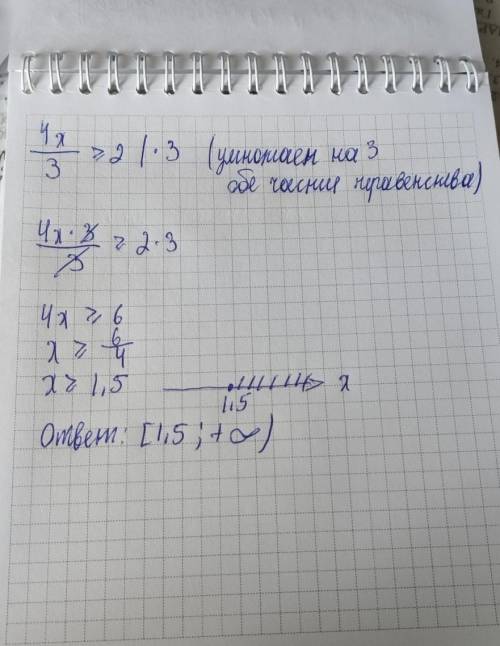 4x/3 ⩾ 2 | · 3 (умножаем на 3
обе части неравенства)
4x · 3/3 ⩾ 2 · 3
4x ⩾ 6
x ⩾ 6/4
x ⩾ 1,5
1,5 x
Ответ: [1,5 ; +∞)